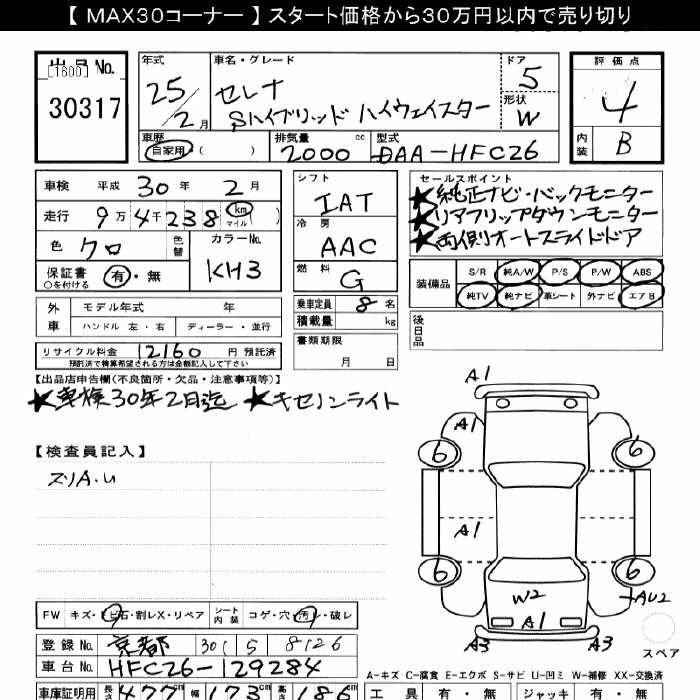 【 MAX30コーナー 】 スタート価格から30万円以内で売り切り
出品No. [1600]
30317
年式 25/2月
車名・グレード セレナ
Sハイブリッド ハイウェイスター
ドア 5
形状 W
評価点 4
内装 B
車歴 自家用・( )
排気量 2000 cc
型式 DAA-HFC26
車検 平成 30年 2月
走行 9万4千238 km マイル ( )
色 クロ 色替
カラーNo. KH3
保証書 有・無
○を付ける
シフト IAT
冷房 AAC
燃料 G
乗車定員 8名
積載量 kg
書類期限
月 日
セールスポイント
★純正ナビ・バックモニター
★リアフリップダウンモニター
★両側オートスライドドア
装備品 S/R 純A/W P/S P/W ABS
純TV 純ナビ 革シート 外ナビ エアB
後日品
外車 モデル年式 年
ハンドル 左・右 ディーラー・並行
リサイクル料金 12160 円 預託済
預託済で検算希望される方は金額記入して下さい
【出品店申告欄(不良箇所・欠品・注意事項等)】
★車検30年2月迄 ★キセノンライト
【検査員記入】
スリA.u
A1
A1
6 6
A1
6 6
W2
A1
AU2
A3 A3
スペア
FW キズ・トビ石・割レX・リペア シート内装 コゲ・穴・汚レ・破レ
登録No. 京都 301 5 8126
車台No. HFC26-129284
A-キズ C-腐食 E-エクボ S-サビ U-凹ミ W-補修 XX-交換済
車庫証明用 長さ 477cm 幅 173cm 高さ 186cm
工具 有・無 ジャッキ 有・無